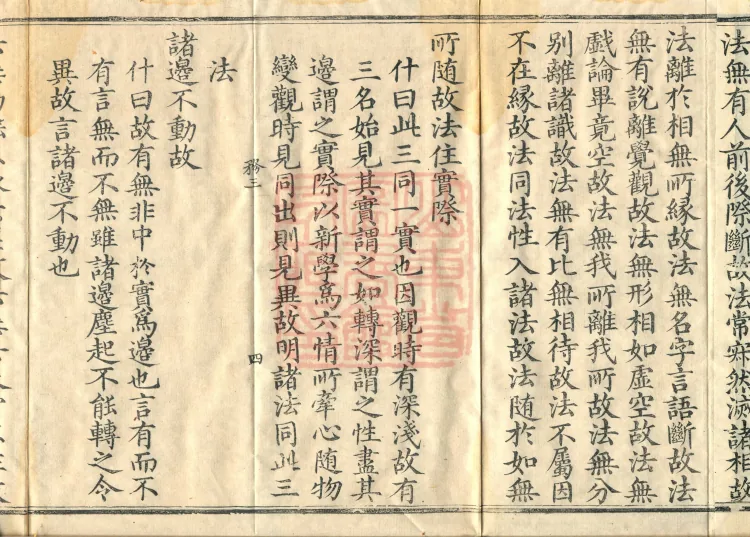 法無有人前後際斷故法常寂然滅諸相故
法離於相無所緣故法無名字言語斷故法
無有說離覺觀故法無形相如虛空故法無
戲論畢竟空故法無我所離我所故法無分
別離諸識故法無有比無相待故法不屬因
不在緣故法同法性入諸法故法隨於如無
所隨故法住實際
什曰此三同一實也因觀時有深淺故有
三名始見其實謂之如轉深謂之性盡其
邊謂之實際以新學爲六情所牽心隨物
變觀時見同出則見異故明諸法同此三
法
四
諸邊不動故
什曰故有無非中於實爲邊也言有而不
有言無而不無雖諸邊塵起不能轉之令
異故言諸邊不動也